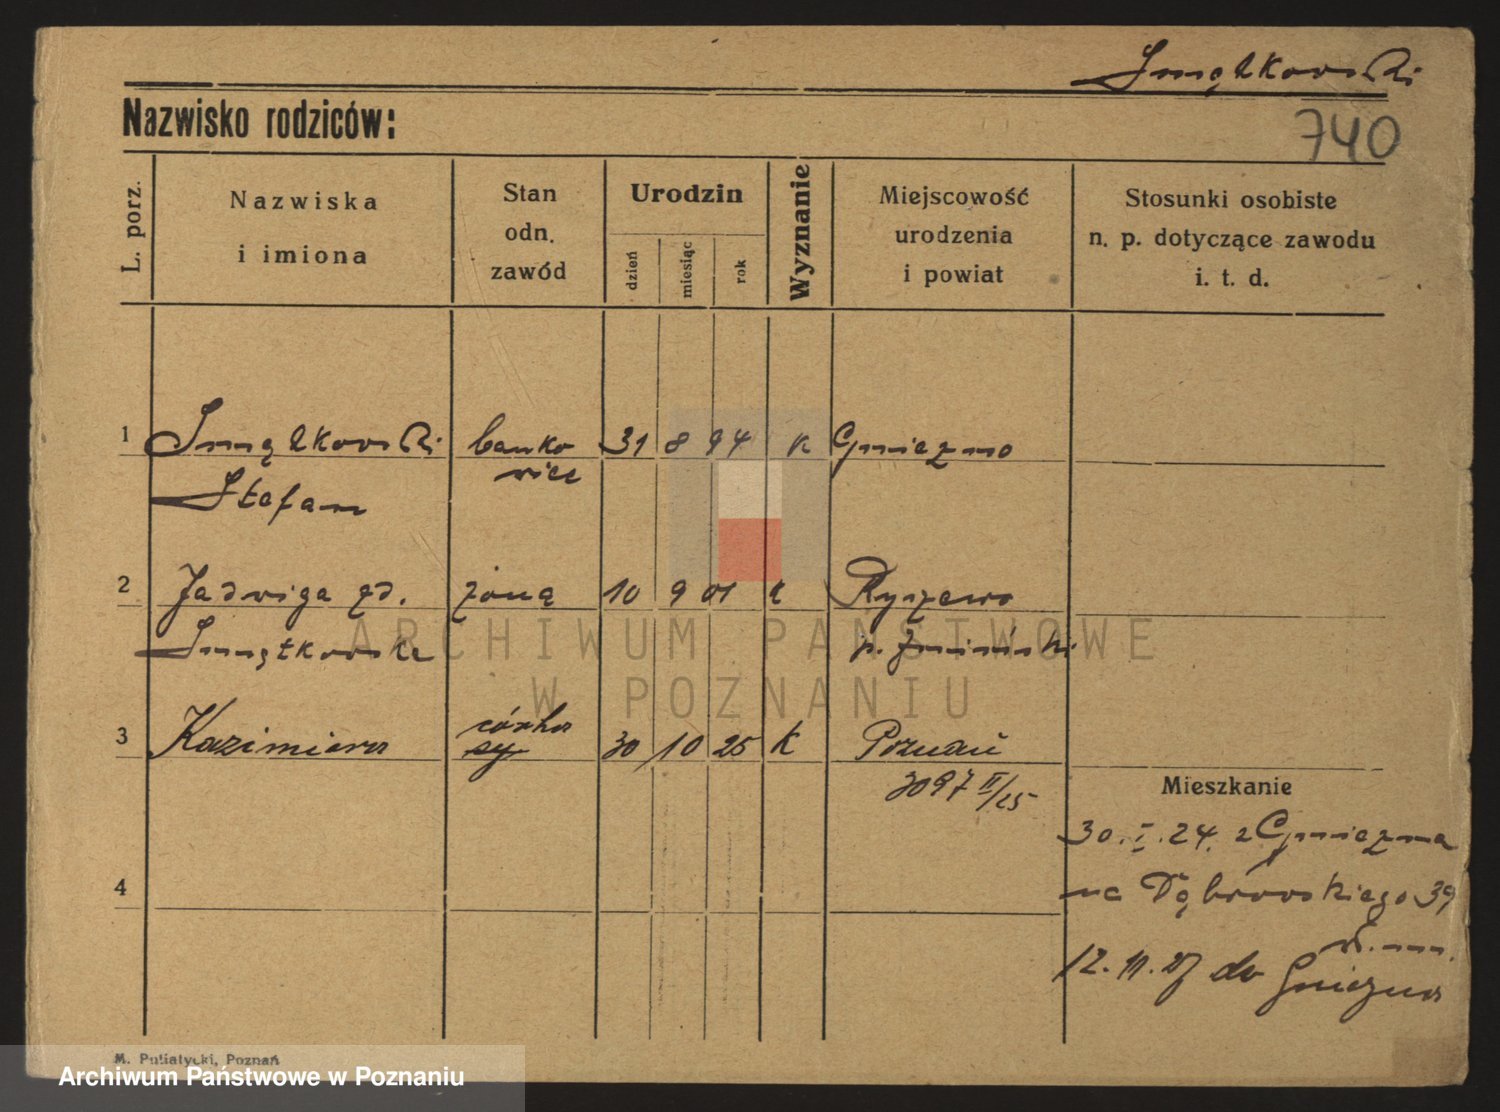 Smętkowski
Nazwisko rodziców:
740
L. porz.
Nazwiska
i imiona
Stan
odn.
zawód
Urodzin
dzień
miesiąc
rok
Wyznanie
Miejscowość
urodzenia
i powiat
Stosunki osobiste
n. p. dotyczące zawodu
i. t. d.
1 Smętkowski banko 31 8 94 k Gniezno
Stefan wiec
2 Jadwiga żona 10 9 01 k Ryszewo
Smętkowska p. Żniński
3 Kazimiera córka 30 10 25 K Poznań
3097 II/25
Mieszkanie
30.I.24. z Gniezna
na Dąbrowskiego 39
4
12.11.27 do Gniezna
M. Putiatycki, Poznań
ARCHIWUM PAŃSTWOWE
W POZNANIU
Archiwum Państwowe w Poznaniu